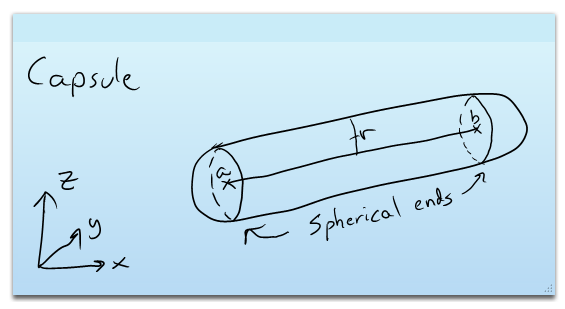 Capsule
b
r
a
z
Spherical ends
y
x